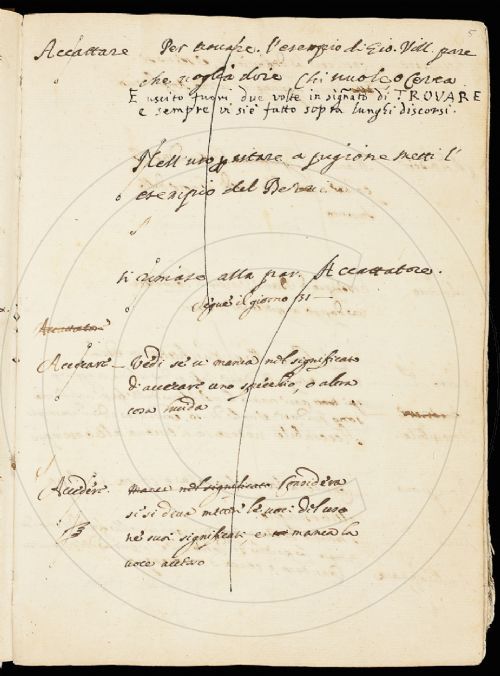 5
Accattare Per trouare. l'esempio di Gio. Vill. pare
che voglia dire chi vuole o cerca
È uscito fuori due volte in signãto di TROVARE
e sempre vi si è fatto sopra lunghi discorsi.
Nell' uso a pigione metti l'
esempio del
si rimase alla par. Accattatore.
segue il giorno 31
Accattatore
Accecare Vedi se vi manca nel significato
d'accecare uno specchio, o altra
cosa lucida
Accedere. manca nel significato Considera
si si deva metter le voci del uso
ne suoi significati e manca la
voce